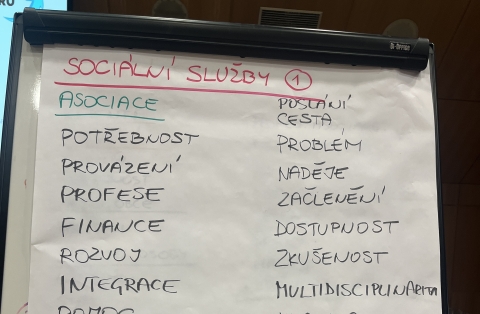 SOCIÁLNÍ SLUŽBY 1
ASOCIACE
POTŘEBNOST
PROVÁZENÍ
PROFESE
FINANCE
ROZVOJ
INTEGRACE
POMOC
POSLÁNÍ
CESTA
PROBLÉM
NADĚJE
ZAČLENĚNÍ
DOSTUPNOST
ZKUŠENOST
MULTIDISCIPLINARITA